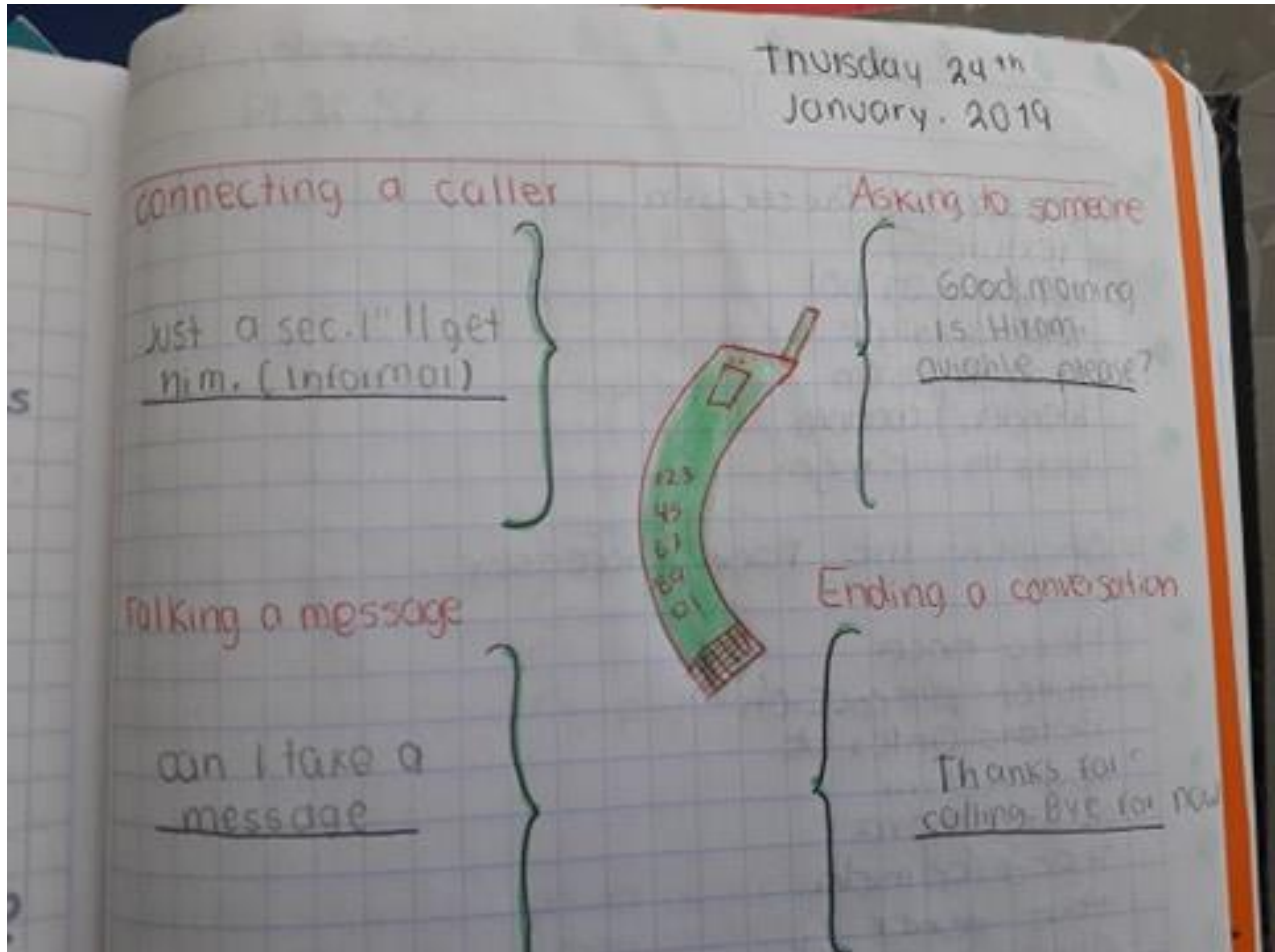 Thursday 24th
January. 2019
connecting a caller
Just a sec. I'll get
him. (Informal)
Asking to someone
Good morning
is Hiram
avaible please?
123
45
67
89
01
Talking a message
can I take a
message
Ending a conversation
Thanks for
calling. Bye for now
s
?